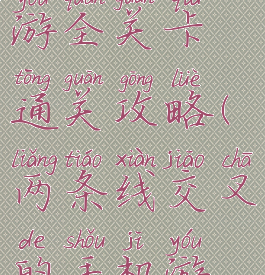 yóu quán guān qiǎ
游全关卡
tōng guān gōng lüè
通关攻略(
liǎng tiáo xiàn jiāo chā
两条线交叉
de shǒu jī yóu
的手机游